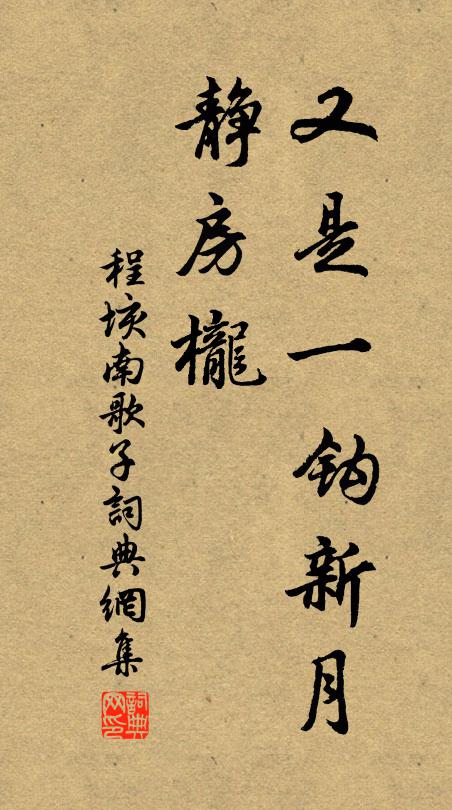 又是一钩新月
静房櫳
程垓南歌子詞典網集
詞典网印